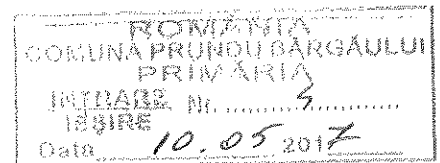 ROMÂNIA
COMUNA PRUNDU BÂRGĂULUI
PRIMĂRIA
INTRARE Nr. ........ 4 ........
IEȘIRE
Data 10.05 2017